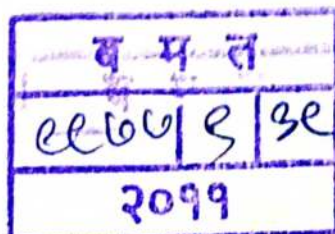 ब म त
९९७७ ३९
२०११